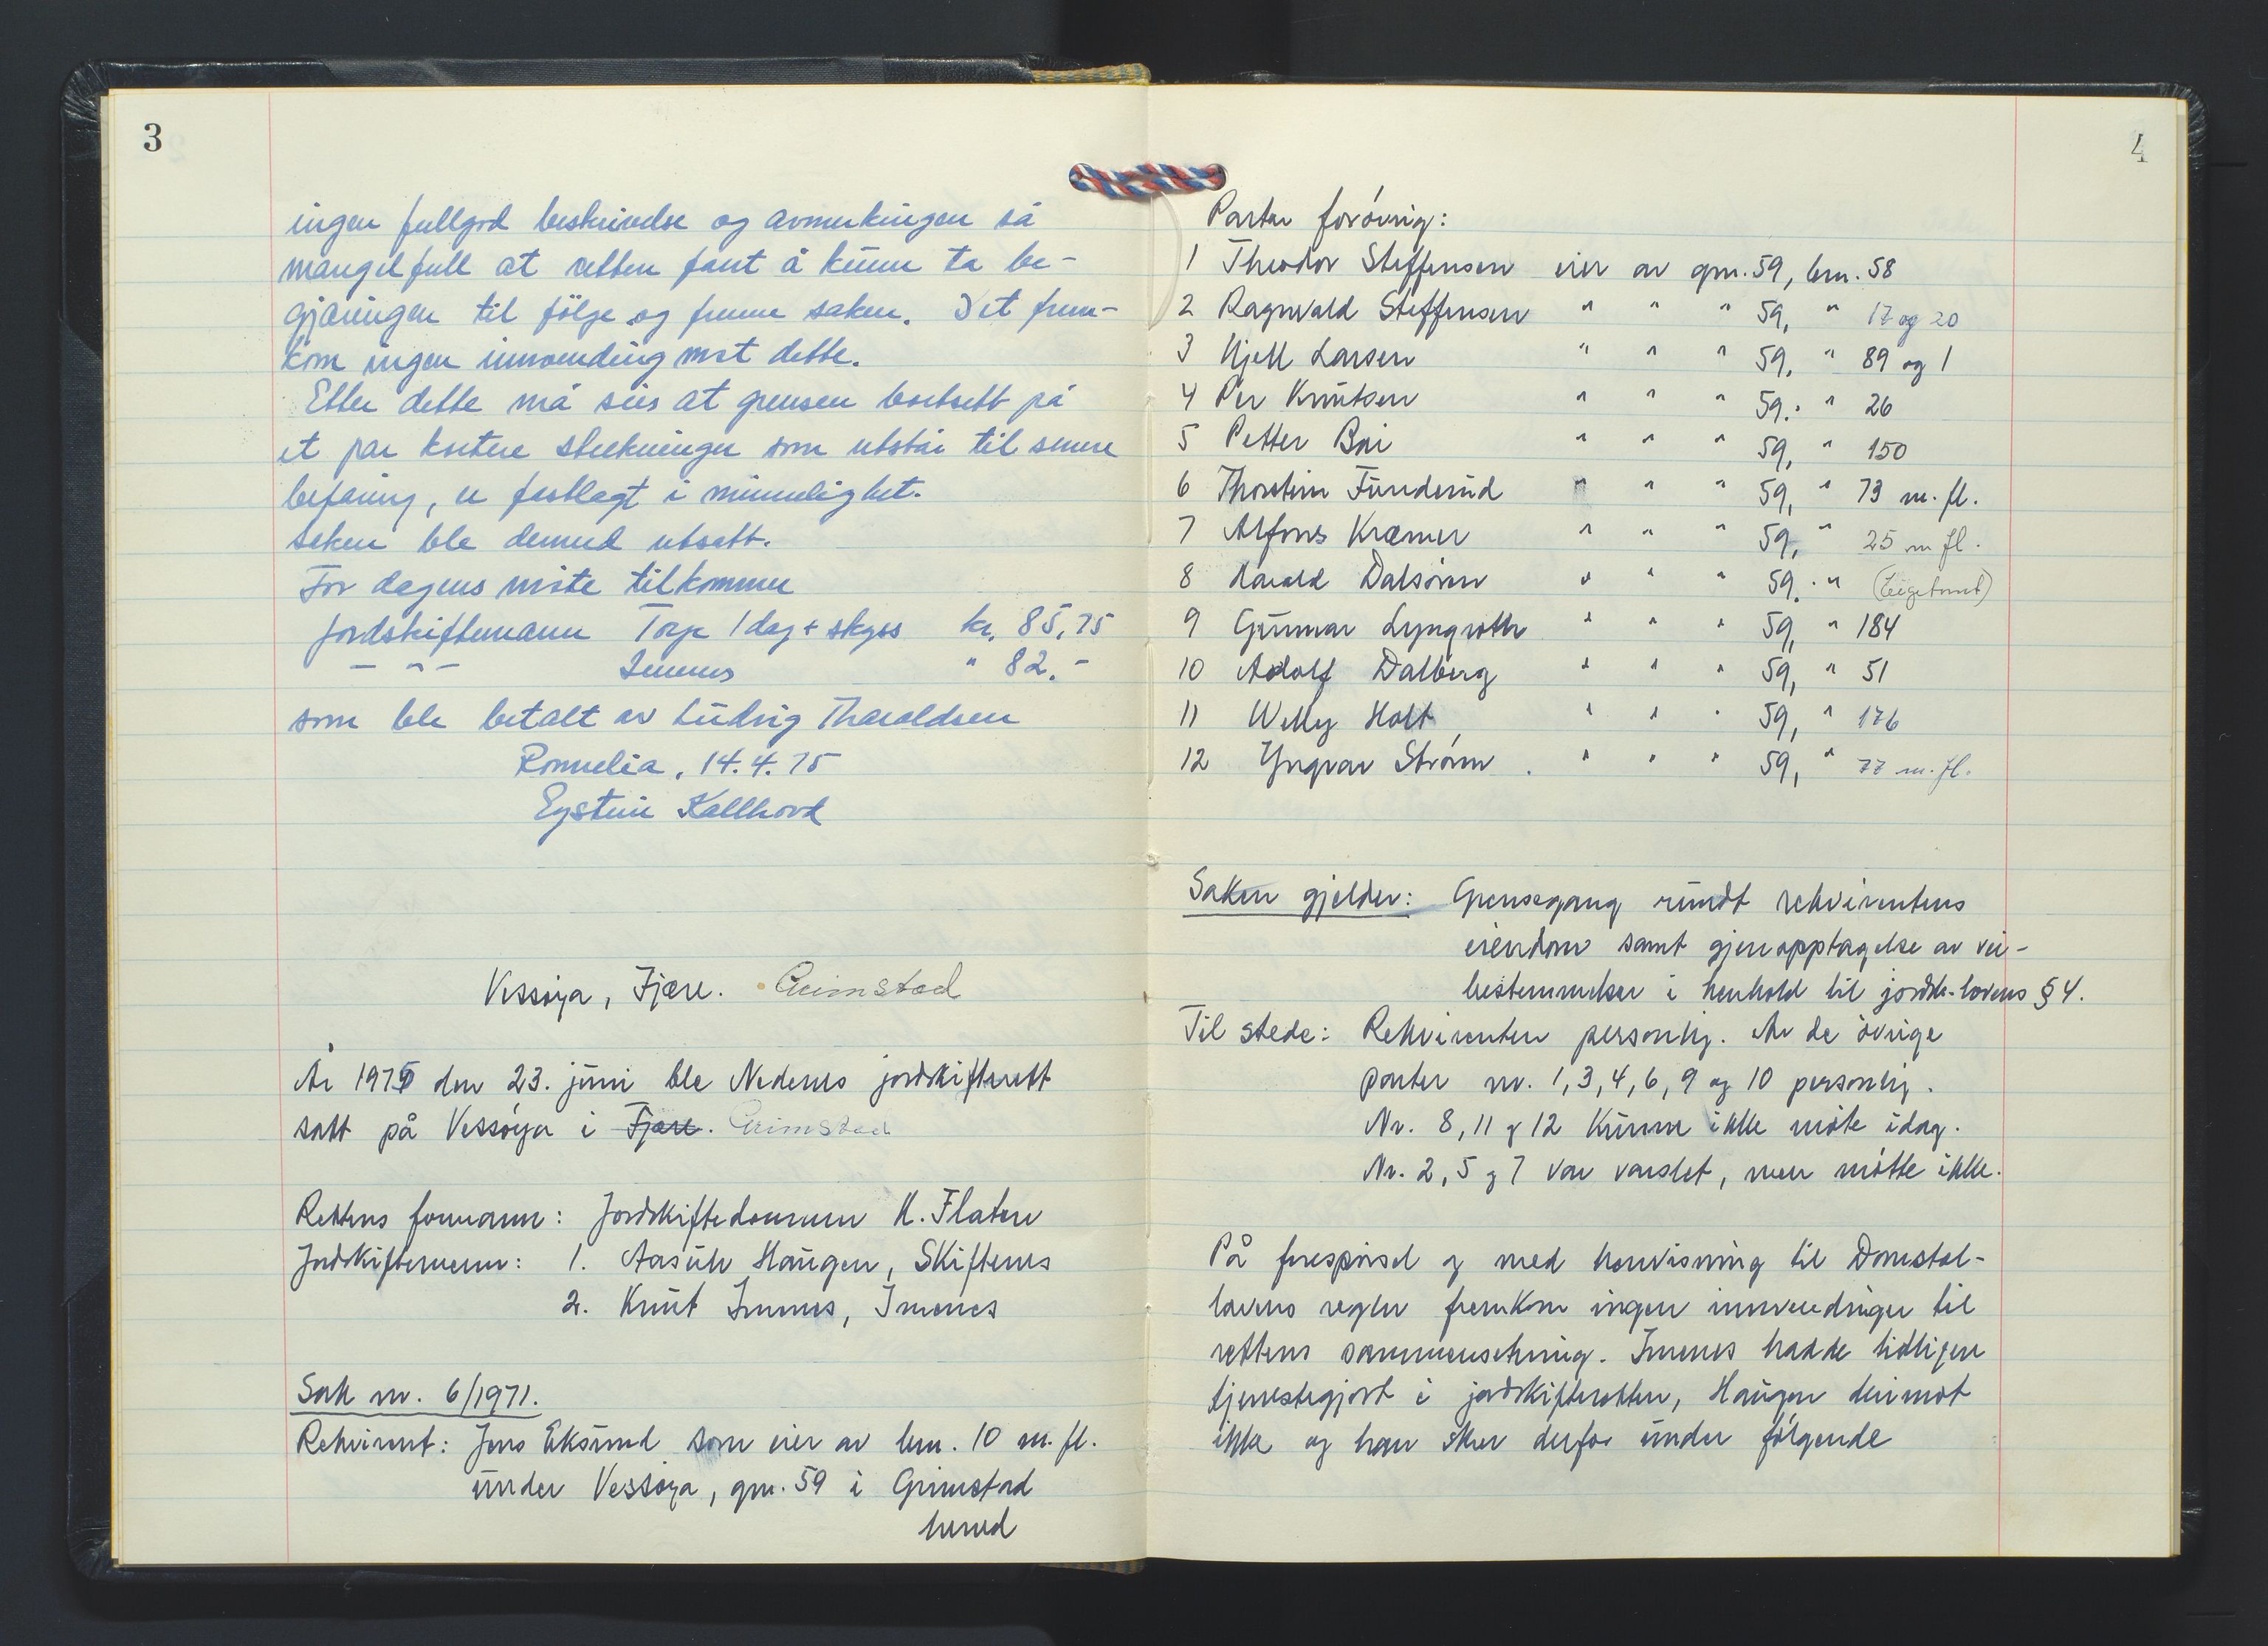 3
ingen fullgod beskrivelse og avmerkingen så
mangelfull at retten fant å kunne ta be-
gjæringen til følge og fremme saken. Det frem-
kom ingen innvending mot dette.
Etter dette må sies at grensen bortsett på
et par kortere strekninger som utstår til senere
befaring, er fastlagt i minnelighet.
Saken ble dermed utsatt.
For dagens møte tilkommer
jordskiftemann Torje 1 dag + skyss kr. 85,75
— " — Imenes " 82.-
som ble betalt av Ludvig Tharaldsen
14.4.75
Eystein Kallhovd
Vessøya, Fjære. Grimstad
År 1975 den 23. juni ble Nedenes jordskifterett
satt på Vessøya i Fjære. Grimstad
Rettens formann: Jordskiftedommer K. Flaten
Jordskiftemenn: 1. Haugen, Skiftenes
2. Knut Imenes, Imenes
Sak nr. 6/1971.
Rekvirent: Jens Eksund som eier av bnr. 10 m. fl.
under Vessøya, gnr. 59 i Grimstad
herred
4
Parter forøvrig:
1 Theodor Steffensen eier av gnr. 59, bnr. 58
2 Ragnvald Steffensen " " " 59, " 17 og 20
3 Kjell Larsen " " " 59, " 89 og 1
4 Per Knutsen " " " 59, " 26
5 Petter Bøi " " " 59, " 150
6 Thorstein Funderud " " " 59, " 73 m. fl.
7 Alfons Kræmer " " " 59, " 25 m fl.
8 Harald Dalsøren " " " 59. " (Leigetomt)
9 Gunnar Lyngroth " " " 59, " 184
10 Adolf Dalberg " " " 59, " 51
11 Willy Holt " " " 59, " 176
12 Yngvar Strøm " " " 59, " 77 m. fl.
Saken gjelder: Grensegang rundt rekvirentens
eiendom samt gjenopptagelse av vei-
bestemmelser i henhold til jordsk.-lovens § 4.
Til stede: Rekvirenten personlig. Av de øvrige
parter nr. 1, 3, 4, 6, 9 og 10 personlig.
Nr. 8, 11 og 12 kunne ikke møte idag.
Nr. 2, 5 og 7 var varslet, men møtte ikke.
På forespørsel og med henvisning til Domstol-
lovens regler fremkom ingen innvendinger til
rettens sammensetning. Imenes hadde tidligere
tjenestegjort i jordskifteretten, Haugen derimot
ikke og han skrev derfor under følgende